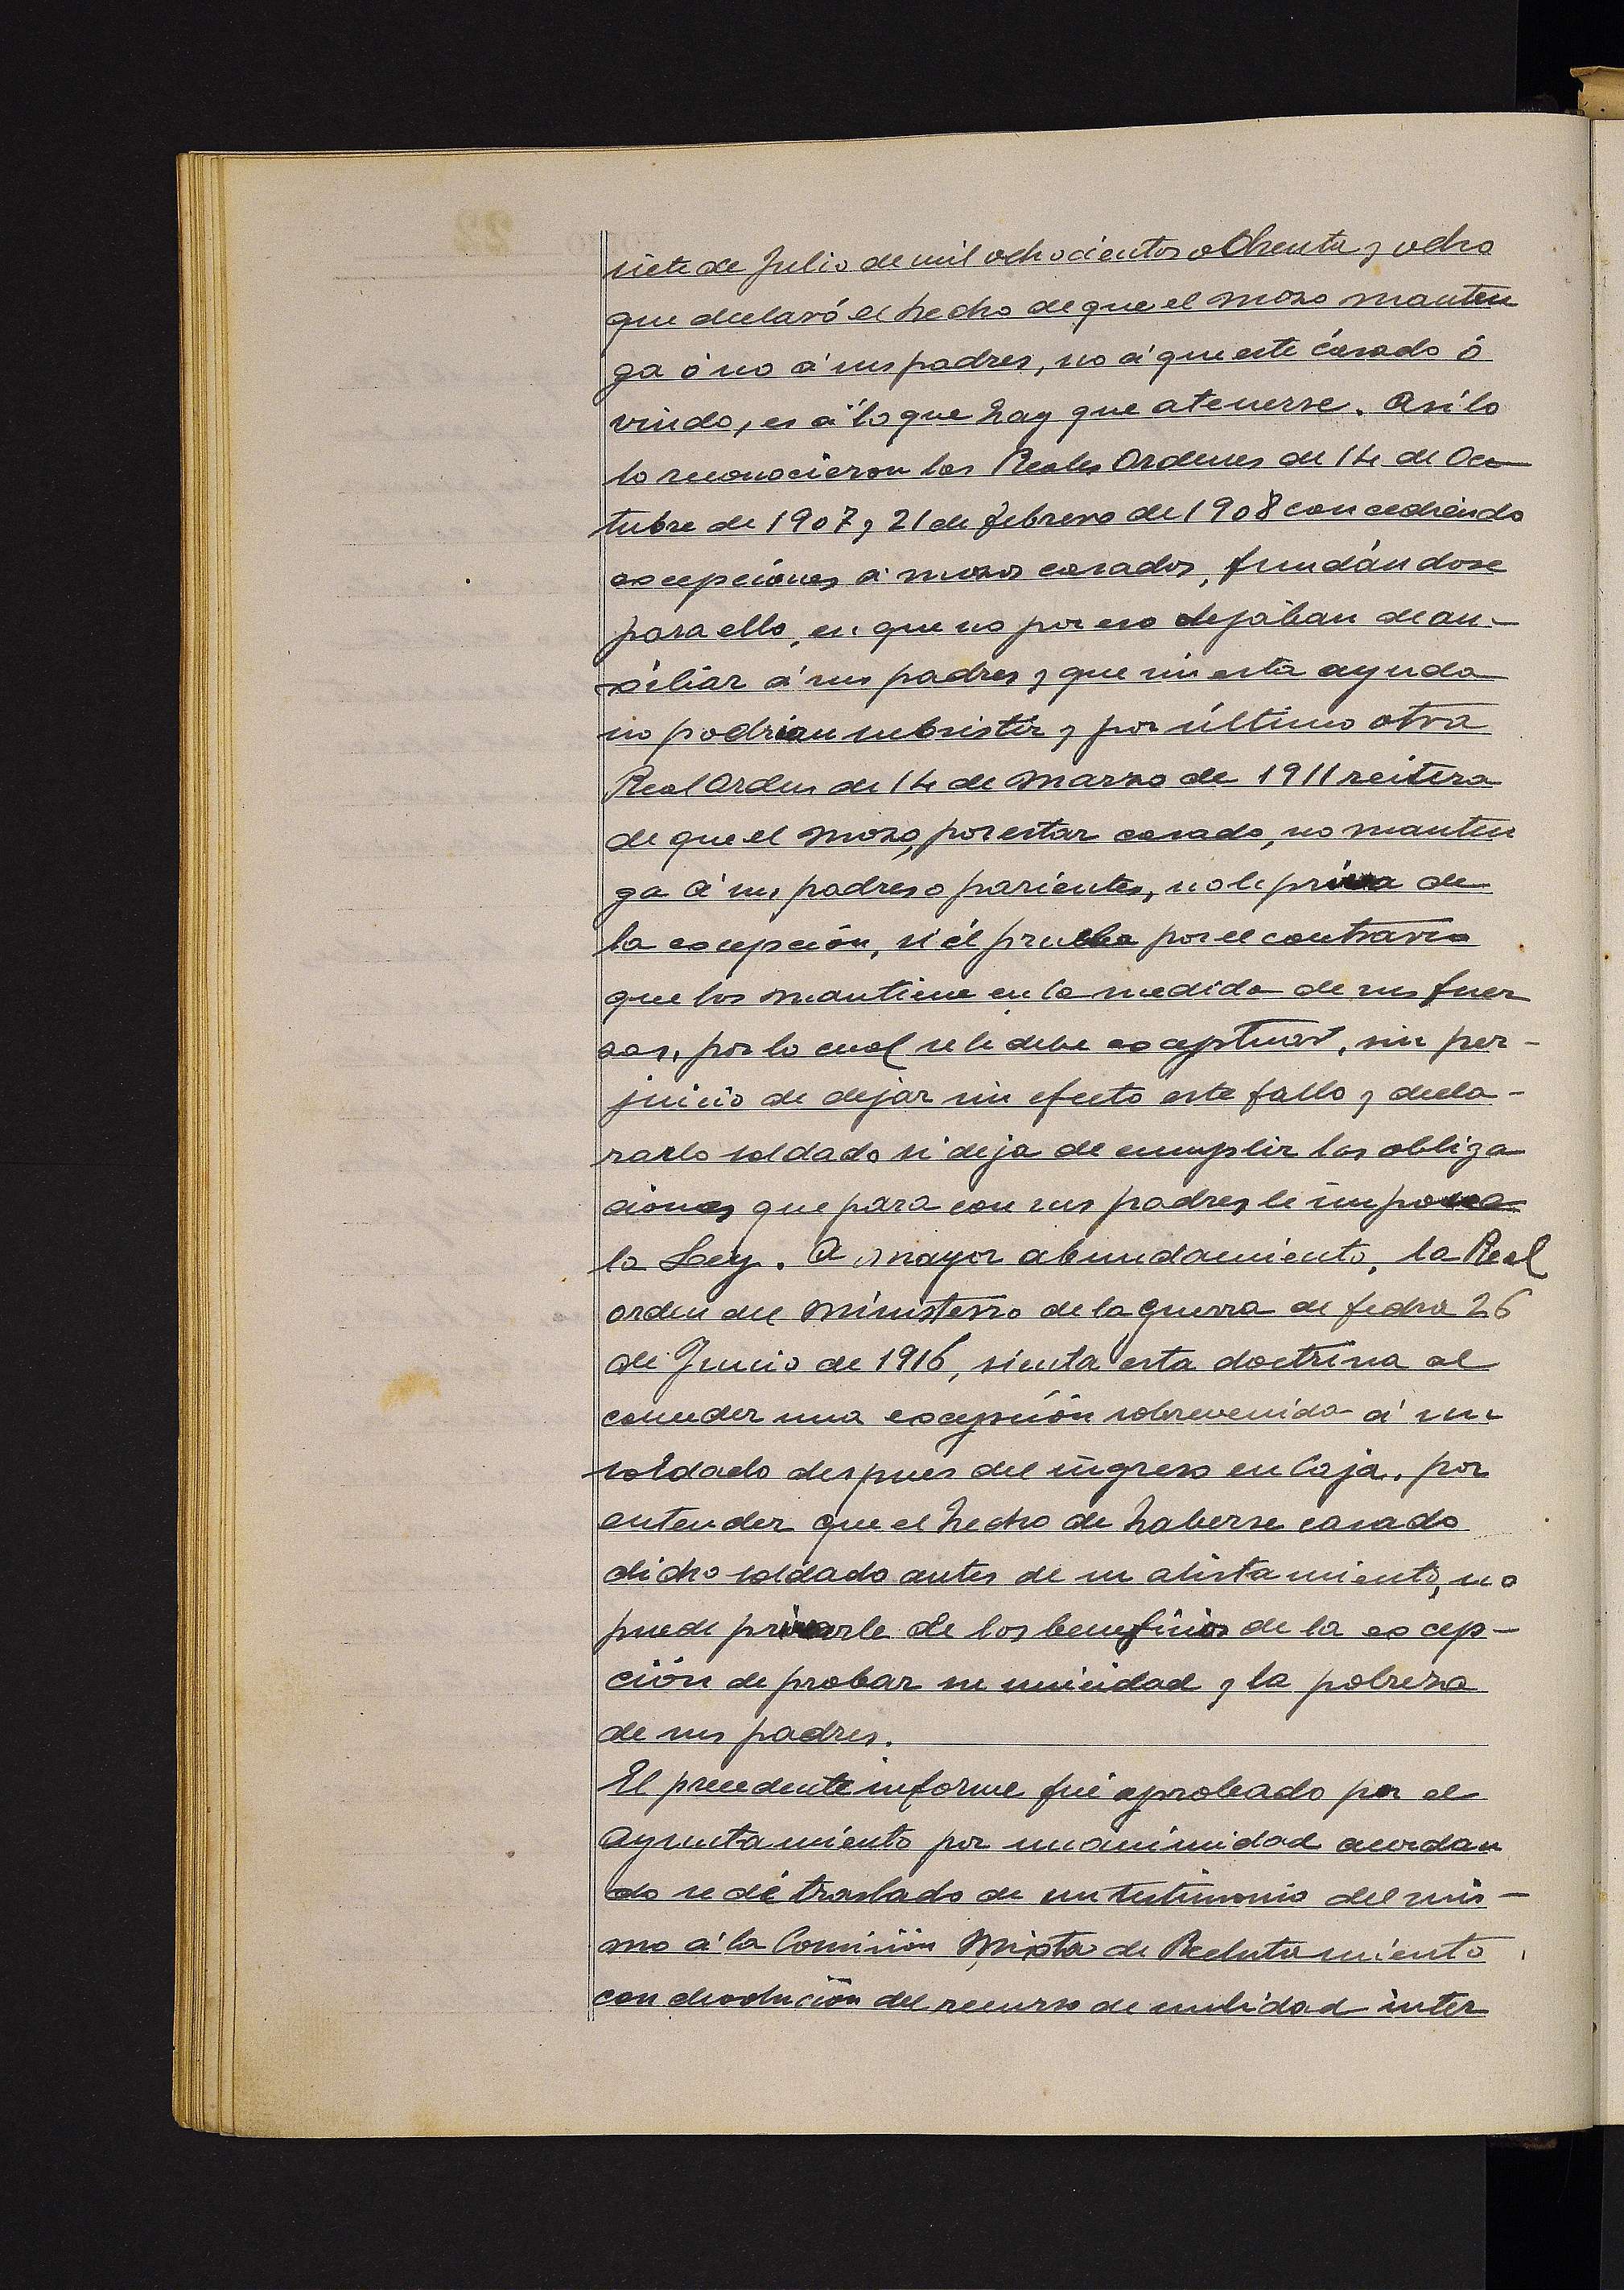 siete de Julio de mil ochocientos ochenta y ocho
que declaró el hecho de que el mozo manten
ga ó no á sus padres, no á que este casado ó
viudo, es á lo que hay que atenerse. Asi lo
lo reconocieron las Reales Ordenes de 14 de Oc
tubre de 1907 y 21 de febrero de 1908 concediendo
excepciones á mozos casados, fundándose
para ello, en que no por eso dejaban de au-
xiliar á sus padres y que sin esta ayuda
no podrian subsistir y por último otra
Real Orden de 14 de Marzo de 1911 reitera
de que el mozo, por estar casado, no manten
ga á sus padres o parientes, no le priva de
la excepción, si él prueba por el contrario
que los mantiene en la medida de sus fuer
zas, por lo cual se le debe exceptuar, sin per-
juicio de dejar sin efecto este fallo y decla-
rarlo soldado si deja de cumplir las obliga
ciones que para con sus padres le impone
la Ley. A mayor abundamiento, la Real
orden del Ministerio de la Guerra de fecha 26
de Junio de 1916, sienta esta doctrina al
conceder una excepción sobrevenida á un
soldado despues del ingreso en Caja, por
entender que el hecho de haberse casado
dicho soldado antes de su alistamiento, no
puede privarle de los beneficios de la excep-
ción de probar su unicidad y la pobreza
de sus padres.
El precedente informe fué aprobado por el
Ayuntamiento por unanimidad acordan
do se dé traslado de un testimonio del mis-
mo á la Comisión Mixta de Reclutamiento
con devolución del recurso de nulidad inter